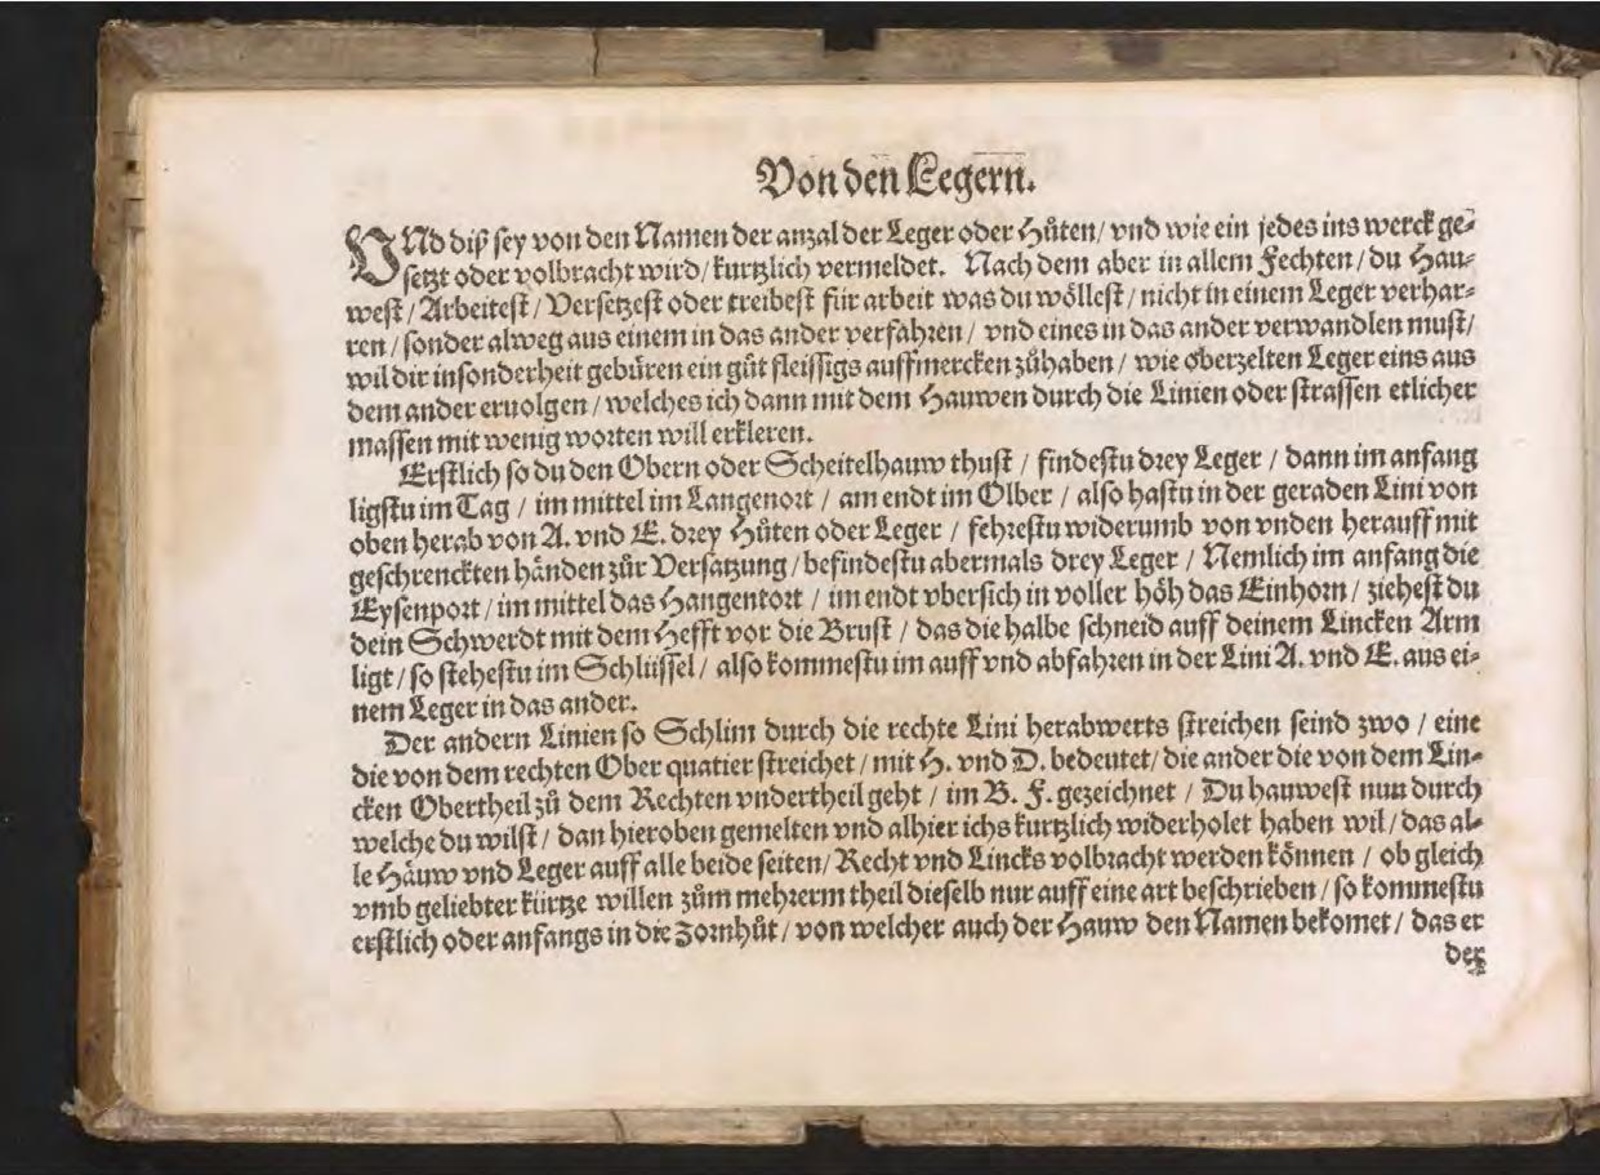 Von den Legern.
VNd diß sey von den Namen der anzal der Leger oder Hůten / vnd wie ein jedes ins werck ge-
setzt oder volbracht wird / kurtzlich vermeldet. Nach dem aber in allem Fechten / du Hau-
west / Arbeitest / Versetzest oder treibest für arbeit was du wöllest / nicht in einem Leger verhar-
ren / sonder alweg aus einem in das ander verfahren / vnd eines in das ander verwandlen must /
wil dir insonderheit gebüren ein gůt fleissigs auffmercken zůhaben / wie oberzelten Leger eins aus
dem ander eruolgen / welches ich dann mit dem Hauwen durch die Linien oder strassen etlicher
massen mit wenig worten will erkleren.
Erstlich so du den Obern oder Scheitelhauw thust / findestu drey Leger / dann im anfang
ligstu im Tag / im mittel im Langenort / am endt im Olber / also hastu in der geraden Lini von
oben herab von A. vnd E. drey Hůten oder Leger / fehrestu widerumb von vnden herauff mit
geschrenckten händen zůr Versatzung / befindestu abermals drey Leger / Nemlich im anfang die
Eysenport / im mittel das Hangentort / im endt vbersich in voller höh das Einhorn / ziehest du
dein Schwerdt mit dem Hefft vor die Brust / das die halbe schneid auff deinem Lincken Arm
ligt / so stehestu im Schlüssel / also kommestu im auff vnd abfahren in der Lini A. vnd E. aus ei-
nem Leger in das ander.
Der andern Linien so Schlim durch die rechte Lini herabwerts streichen seind zwo / eine
die von dem rechten Ober quatier streichet / mit H. vnd D. bedeutet / die ander die von dem Lin-
cken Obertheil zů dem Rechten vndertheil geht / im B. F. gezeichnet / Du hauwest nun durch
welche du wilst / dan hieroben gemelten vnd alhier ichs kurtzlich widerholet haben wil / das al-
le Häuw vnd Leger auff alle beide seiten / Recht vnd Lincks volbracht werden können / ob gleich
vmb geliebter kürtze willen zům mehrerm theil dieselb nur auff eine art beschrieben / so kommestu
erstlich oder anfangs in die Zornhůt / von welcher auch der Hauw den Namen bekomet / das er
der